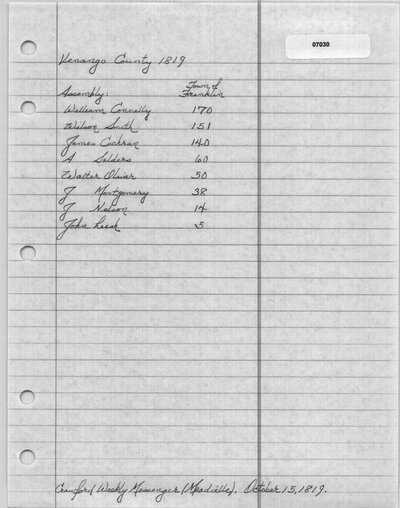 07030
Venango County 1819
Town of
Assembly: Franklin
William Connelly 170
Wilson Smith 151
James Cochran 140
A Selders 60
Walter Oliver 50
J Montgomery 38
J Nelson 14
John Leech 5
Crawford Weekly Messenger (Meadville). October 15, 1819.